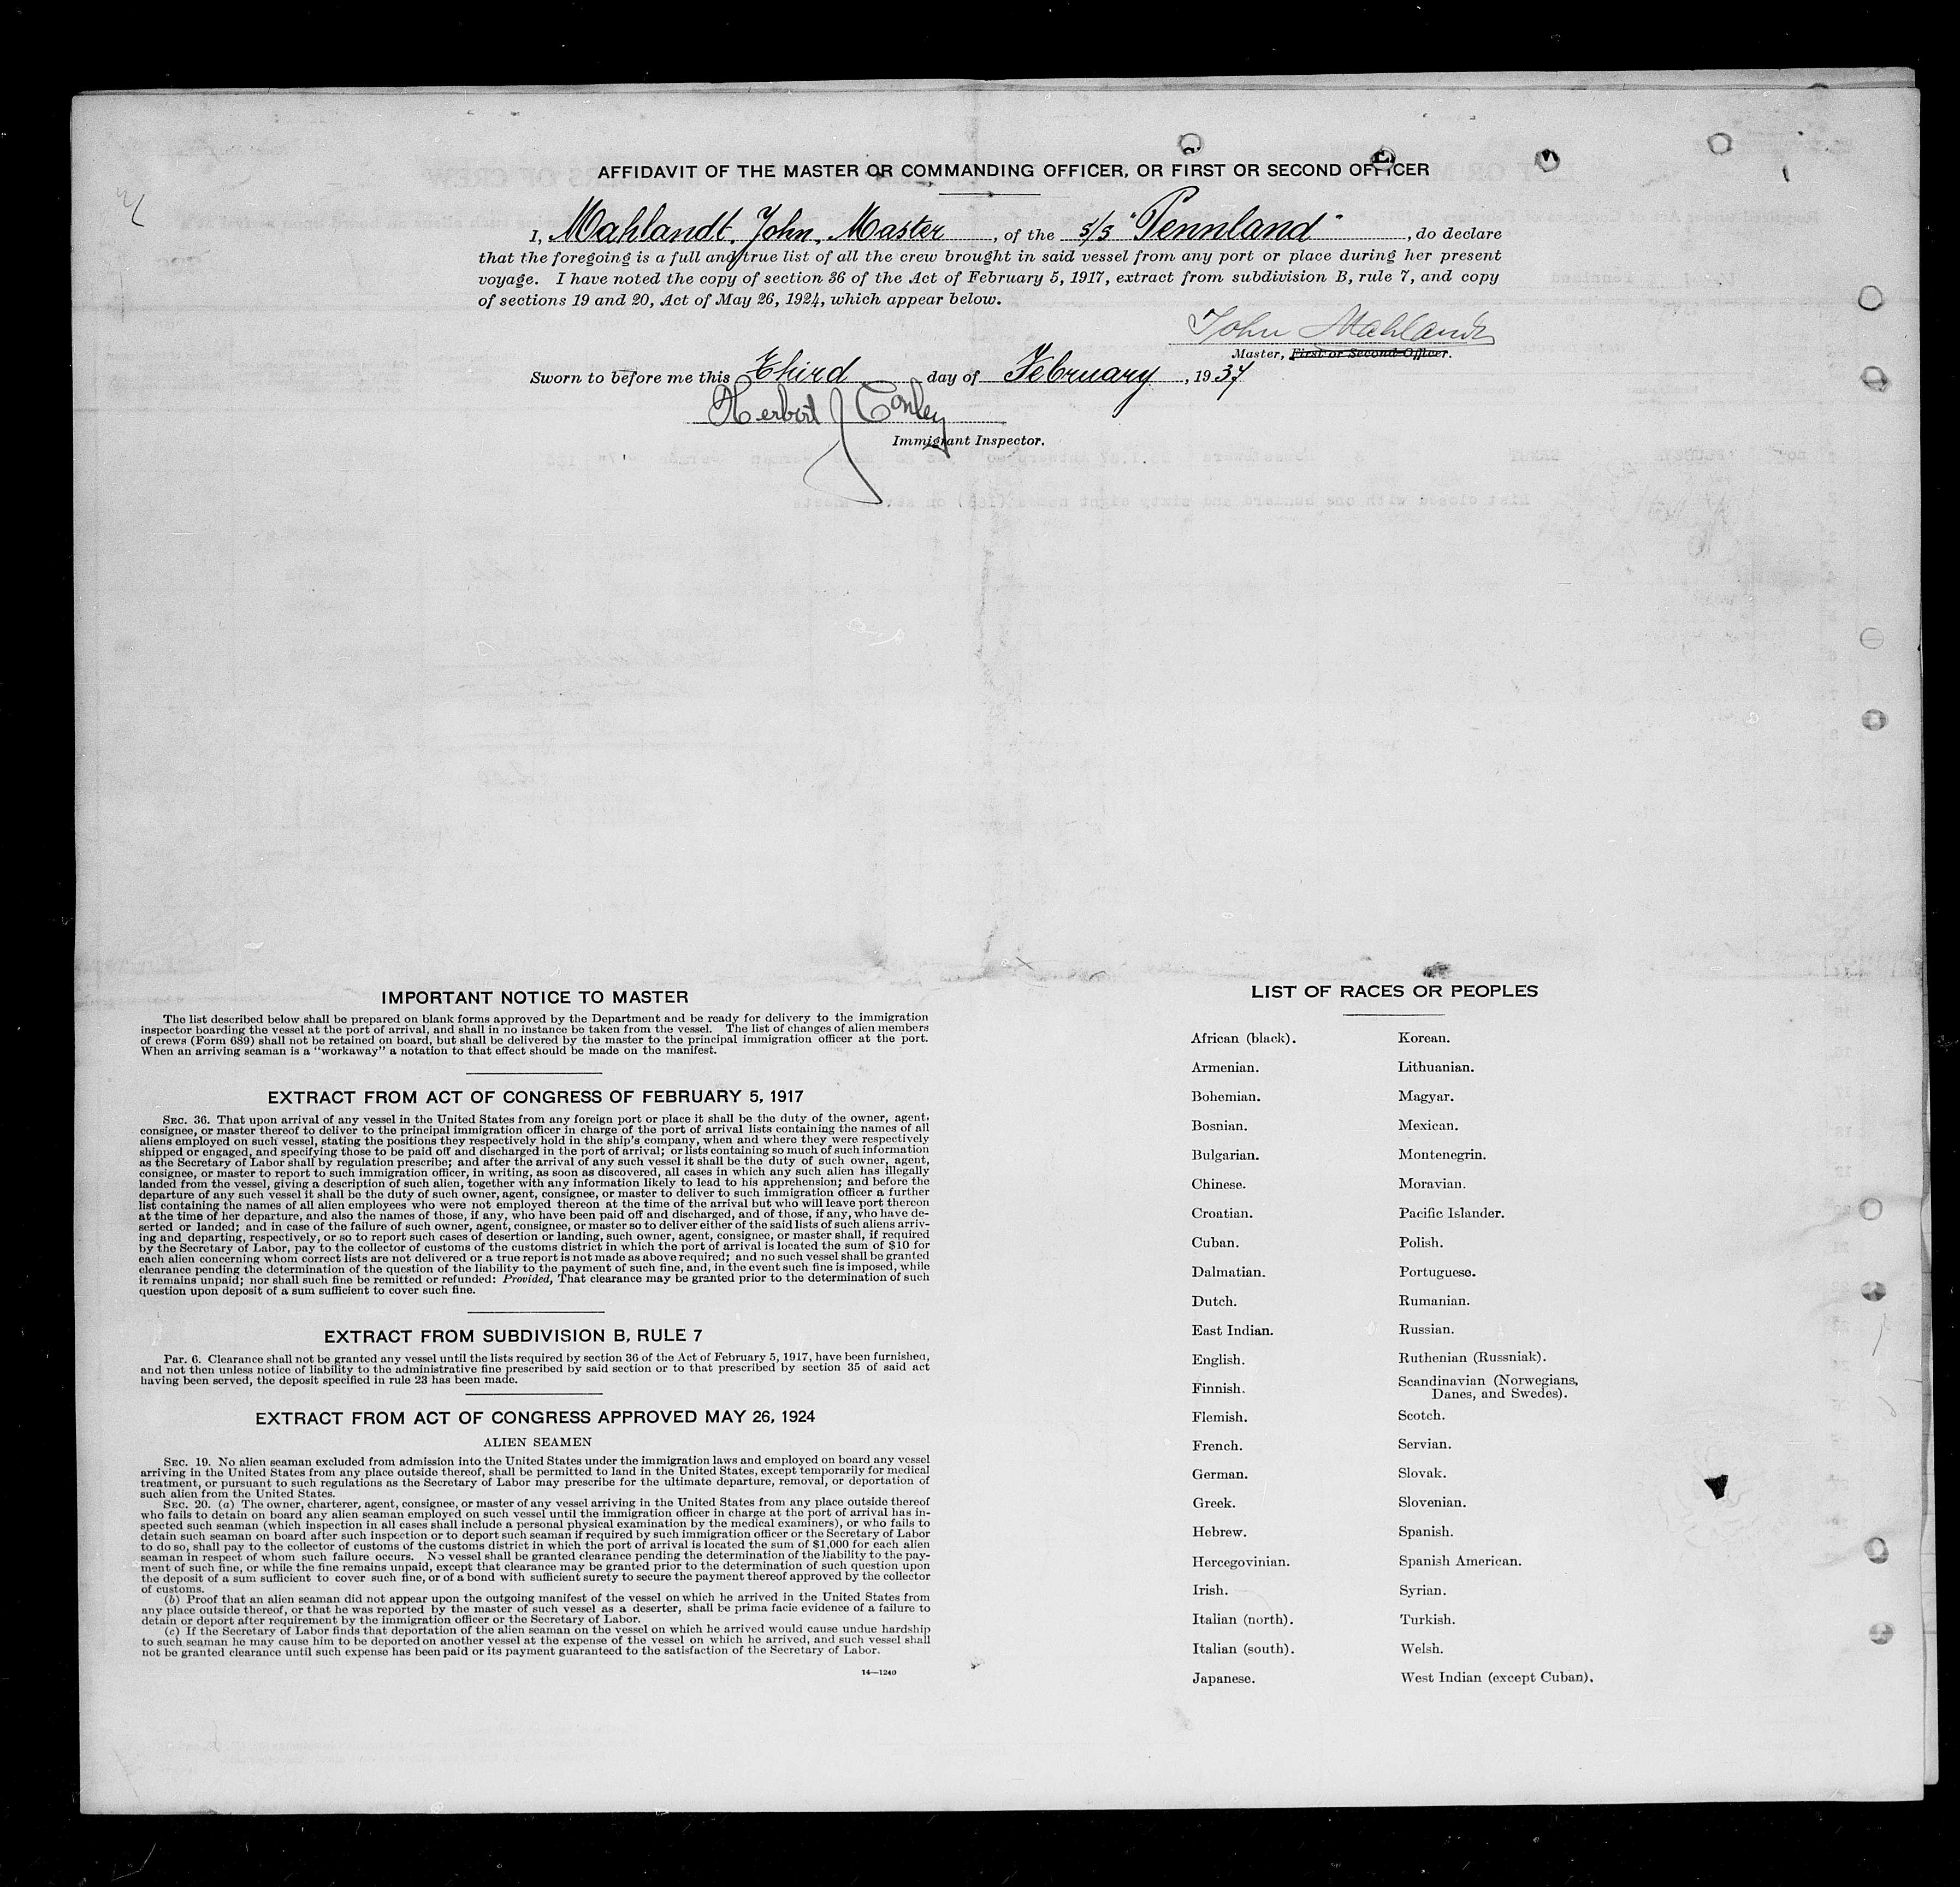 AFFIDAVIT OF THE MASTER OR COMMANDING OFFICER, OR FIRST OR SECOND OFFICER
I, Mahlandt, John, Master, of the s/s "Pennland", do declare
that the foregoing is a full and true list of all the crew brought in said vessel from any port or place during her present
voyage. I have noted the copy of section 36 of the Act of February 5, 1917, extract from subdivision B, rule 7, and copy
of sections 19 and 20, Act of May 26, 1924, which appear below.
John Mahlandt
Master, First or Second Officer.
Sworn to before me this Third day of February, 1937
Herbert J Conley
Immigrant Inspector.
IMPORTANT NOTICE TO MASTER
The list described below shall be prepared on blank forms approved by the Department and be ready for delivery to the immigration
inspector boarding the vessel at the port of arrival, and shall in no instance be taken from the vessel. The list of changes of alien members
of crews (Form 689) shall not be retained on board, but shall be delivered by the master to the principal immigration officer at the port.
When an arriving seaman is a "workaway" a notation to that effect should be made on the manifest.
EXTRACT FROM ACT OF CONGRESS OF FEBRUARY 5, 1917
SEC. 36. That upon arrival of any vessel in the United States from any foreign port or place it shall be the duty of the owner, agent,
consignee, or master thereof to deliver to the principal immigration officer in charge of the port of arrival lists containing the names of all
aliens employed on such vessel, stating the positions they respectively hold in the ship's company, when and where they were respectively
shipped or engaged, and specifying those to be paid off and discharged in the port of arrival; or lists containing so much of such information
as the Secretary of Labor shall by regulation prescribe; and after the arrival of any such vessel it shall be the duty of such owner, agent,
consignee, or master to report to such immigration officer, in writing, as soon as discovered, all cases in which any such alien has illegally
landed from the vessel, giving a description of such alien, together with any information likely to lead to his apprehension; and before the
departure of any such vessel it shall be the duty of such owner, agent, consignee, or master to deliver to such immigration officer a further
list containing the names of all alien employees who were not employed thereon at the time of the arrival but who will leave port thereon
at the time of her departure, and also the names of those, if any, who have been paid off and discharged, and of those, if any, who have de-
serted or landed; and in case of the failure of such owner, agent, consignee, or master so to deliver either of the said lists of such aliens arriv-
ing and departing, respectively, or so to report such cases of desertion or landing, such owner, agent, consignee, or master shall, if required
by the Secretary of Labor, pay to the collector of customs of the customs district in which the port of arrival is located the sum of $10 for
each alien concerning whom correct lists are not delivered or a true report is not made as above required; and no such vessel shall be granted
clearance pending the determination of the question of the liability to the payment of such fine, and, in the event such fine is imposed, while
it remains unpaid; nor shall such fine be remitted or refunded: Provided, That clearance may be granted prior to the determination of such
question upon deposit of a sum sufficient to cover such fine.
EXTRACT FROM SUBDIVISION B, RULE 7
Par. 6. Clearance shall not be granted any vessel until the lists required by section 36 of the Act of February 5, 1917, have been furnished,
and not then unless notice of liability to the administrative fine prescribed by said section or to that prescribed by section 35 of said act
having been served, the deposit specified in rule 23 has been made.
EXTRACT FROM ACT OF CONGRESS APPROVED MAY 26, 1924
ALIEN SEAMEN
SEC. 19. No alien seaman excluded from admission into the United States under the immigration laws and employed on board any vessel
arriving in the United States from any place outside thereof, shall be permitted to land in the United States, except temporarily for medical
treatment, or pursuant to such regulations as the Secretary of Labor may prescribe for the ultimate departure, removal, or deportation of
such alien from the United States.
SEC. 20. (a) The owner, charterer, agent, consignee, or master of any vessel arriving in the United States from any place outside thereof
who fails to detain on board any alien seaman employed on such vessel until the immigration officer in charge at the port of arrival has in-
spected such seaman (which inspection in all cases shall include a personal physical examination by the medical examiners), or who fails to
detain such seaman on board after such inspection or to deport such seaman if required by such immigration officer or the Secretary of Labor
to do so, shall pay to the collector of customs of the customs district in which the port of arrival is located the sum of $1,000 for each alien
seaman in respect of whom such failure occurs. No vessel shall be granted clearance pending the determination of the liability to the pay-
ment of such fine, or while the fine remains unpaid, except that clearance may be granted prior to the determination of such question upon
the deposit of a sum sufficient to cover such fine, or of a bond with sufficient surety to secure the payment thereof approved by the collector
of customs.
(b) Proof that an alien seaman did not appear upon the outgoing manifest of the vessel on which he arrived in the United States from
any place outside thereof, or that he was reported by the master of such vessel as a deserter, shall be prima facie evidence of a failure to
detain or deport after requirement by the immigration officer or the Secretary of Labor.
(c) If the Secretary of Labor finds that deportation of the alien seaman on the vessel on which he arrived would cause undue hardship
to such seaman he may cause him to be deported on another vessel at the expense of the vessel on which he arrived, and such vessel shall
not be granted clearance until such expense has been paid or its payment guaranteed to the satisfaction of the Secretary of Labor.
14—1240
LIST OF RACES OR PEOPLES
African (black).
Armenian.
Bohemian.
Bosnian.
Bulgarian.
Chinese.
Croatian.
Cuban.
Dalmatian.
Dutch.
East Indian.
English.
Finnish.
Flemish.
French.
German.
Greek.
Hebrew.
Hercegovinian.
Irish.
Italian (north).
Italian (south).
Japanese.
Korean.
Lithuanian.
Magyar.
Mexican.
Montenegrin.
Moravian.
Pacific Islander.
Polish.
Portuguese.
Rumanian.
Russian.
Ruthenian (Russniak).
Scandinavian (Norwegians,
Danes, and Swedes).
Scotch.
Servian.
Slovak.
Slovenian.
Spanish.
Spanish American.
Syrian.
Turkish.
Welsh.
West Indian (except Cuban).